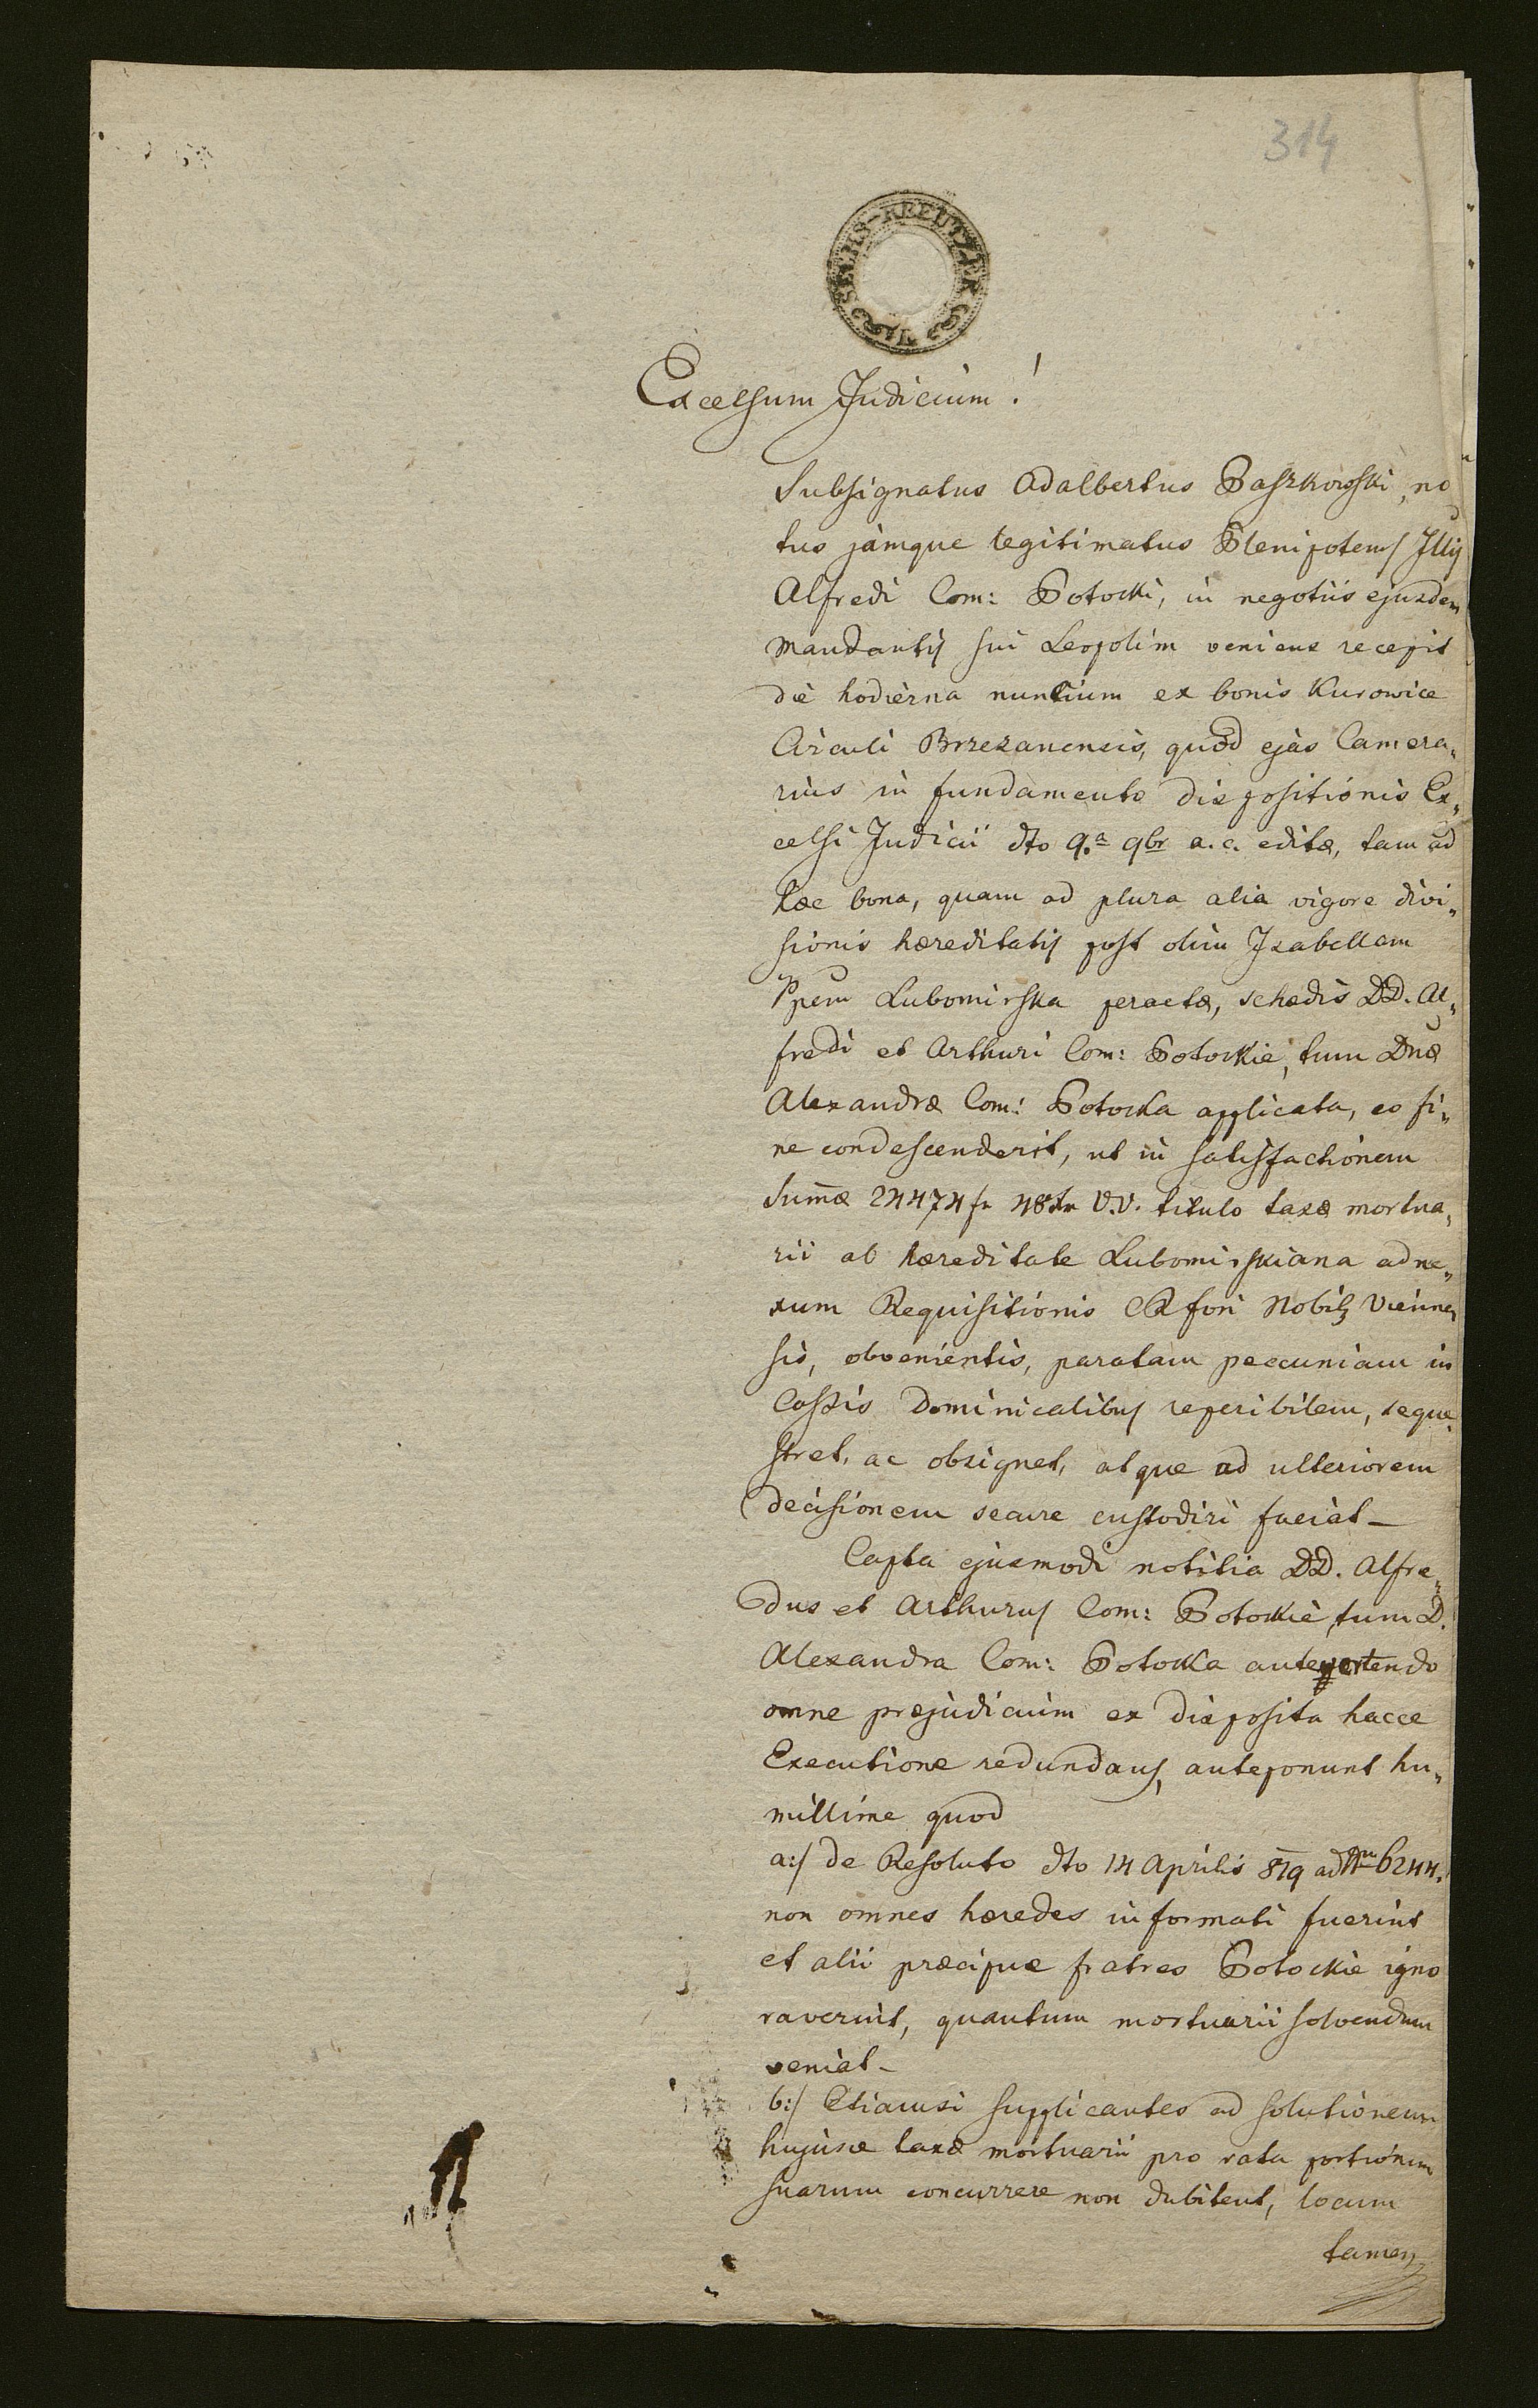 314
SECHS-KREUTZER
Excelsum Judicium!
Subsignatus Adalbertus Paszkowski, no
tus jamque legitimatus Plenipotens Illij
Alfredi Com: Potocki, in negotiis ejusdem
Mandantis sui Leopolim veniens recepit
die hodierna nuncium ex bonis Kurowice
Circuli Brzezanensis, quod ejus Camera„
rius in fundamento dispositionis Ex„
celsi Judicii dto 9.a 9br a. c. editæ, tam ad
hæc bona, quam ad plura alia vigore divi„
sionis hæreditatis post olim Izabellam
Ppem Lubomirska peractæ, schedis DD. Al„
fredi et Arthuri Com: Potockie, tum Dnæ
Alexandræ Com: Potocka applicata, eo fi„
ne condescenderit, ut in satisfactionem
Sum̄æ 24474 fr 48 xr V.V. titulo taxæ mortua„
rii ab hæreditate Lubomirskiana ad ne„
xum Requisitionis CR fori Nobil Viennen
sis, obvenientis, paratam pecuniam in
Cassis Dominicalibus reperibilem, seque„
stret, ac obsignet, atque ad ulteriorem
decisionem secure custodiri faciat_
Capta ejusmodi notitia DD. Alfre„
dus et Arthurus Com: Potockie, tum D.
Alexandra Com: Potocka antevertendo
omne præjudicium ex disposita hacce
Executione redundans, anteponunt hu„
millime quod
a:/ de Resoluto dto 14 Aprilis 819 ad Nrum 6244.
non omnes hæredes informati fuerint
et alii præcipue fratres Potockie igno
raverint, quantum mortuarii solvendum
veniat_
b:/ Etiamsi supplicantes ad solutionem
hujusce taxæ mortuarii pro rata portionum
suarum concurrere non dubitent, locum
tamen